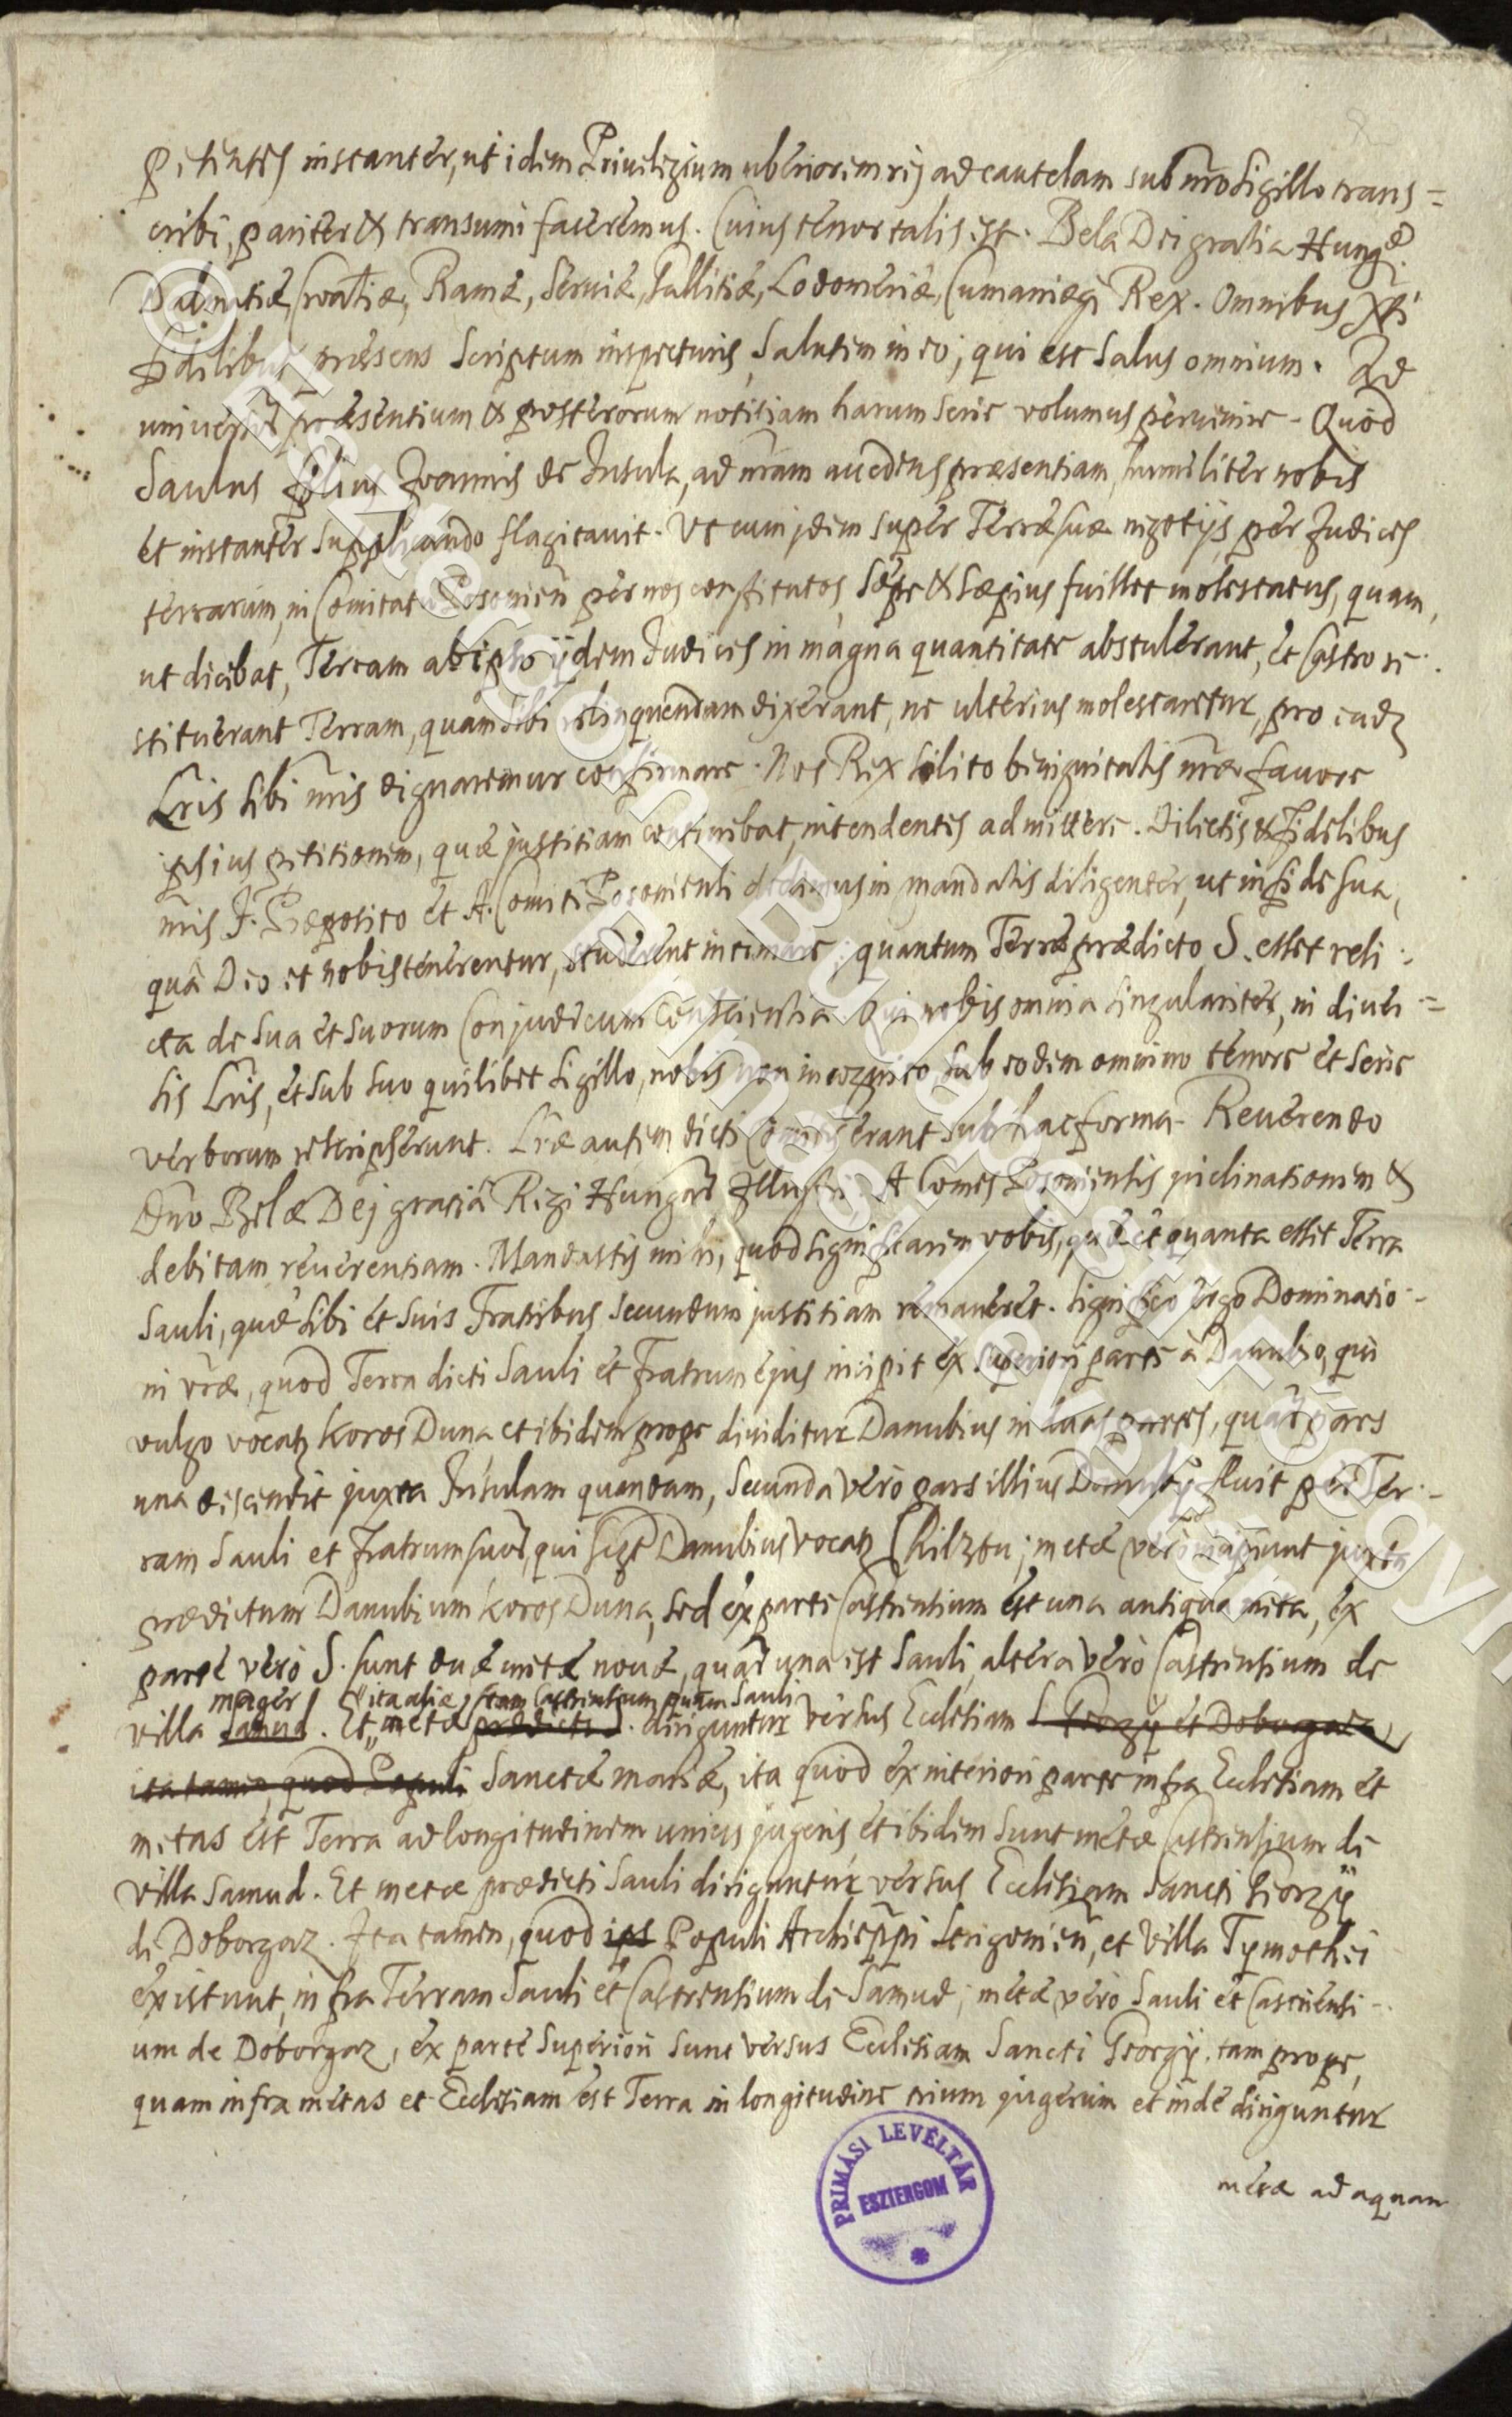 petentes instanter, ut idem Priuilegium uberiorem rej ad cautelam sub nro Sigillo trans=
cribi, pariter & transumi faceremus. Cuius tenor talis est. Bela Dei gratia Hung.
Dalmatiæ, Croatiæ, Ramæ, Seruiæ, Gallitiæ, Lodomeriæ, Cumaniæq; Rex. Omnibus Xti
Fidelibus præsens Scriptum inspecturis, Salutem in eo, qui est Salus omnium. Ad
uniuersor præsentium & posterorum notitiam harum serie volumus peruenire. Quod
Saulus filius Joannis de Insula, ad nram accedens præsentiam, humiliter nobis
et instanter Supplicando flagitauit. Ut cum jdem super Terræ suæ negotijs per Judices
terrarum, in Comitatu Posonien per nos constitutos, sæpe & sæpius fuisset molestatus, quam,
ut dicebat, Terram ab ipso ijdem Judices in magna quantitate abstulerant, et Castro re-
stituerant Terram, quam sibi relinquendam dixerant, ne ulterius molestaretur, pro eadz
Lris sibi nris dignaremur confirmare. Nos Rex solito benignitatis nræ fauore
ipsius petitionem, quæ justitiam continebat, intendentes admittere. Dilectis & Fidelibus
nris F. Præposito et A. Comiti Posoniensi dedimus in mandatis diligenter, ut in fide sua,
quâ Deo et nobis tenerentur, studerent intimare; quantum Terræ prædicto S. esset reli-
cta de sua et suorum Conjudicum Conscientia. Qui nobis omnia singulariter, in diuer=
sis Lris, et sub suo quilibet Sigillo, nobis non incognito, sub eodem omnino tenore et serie
verborum rescripserunt. Lræ autem dicti Comitis erant sub hac forma. Reuerendo
Dno Belæ Dej gratiâ Regi Hungar Illustri, A Comes Posoniensis inclinationem &
debitam reuerentiam. Mandastis mihi, quod significarem vobis, quæ et quanta esset Terra
Sauli, quæ sibi et suis Fratribus secundum justitiam remaneret. Significo ergo Dominatio-
ni vræ, quod Terra dicti Sauli et Fratrum ejus incipit ex superiori parte à Danubio, qui
vulgo vocatz Koros Duna et ibidem prope diuiditur Danubius in duas partes, quar pars
una descendit juxta Insulam quandam, Secunda verò pars illius Danubij fluit per Ter-
ram Sauli et Fratrum suor, qui Danubius vocatz Chilztu; metæ verò incipiunt juxta
prædictum Danubium Koros Duna, sed ex parte Castrensium est una antiqua meta, ex
parte verò S. sunt duæ metæ nouæ, quar una est Sauli, altera verò Castrensium de
mager ita aliæ tam Castrensium quam Sauli
villa Samud. Et metæ prædicti S. diriguntur versus Ecclesiam S. Georgij et Doborgaz
ita tamen, quod Populi Sanctæ mariæ, ita quod ex interiori parte infra Ecclesiam et
metas est Terra ad longitudinem unius jugeris, et ibidem sunt metæ Castrensium de
villa Samud. Et metæ prædicti Sauli diriguntur versus Ecclesiam Sancti Georgij
de Doborgaz. Ita tamen, quod ips Populi Archieppi Strigonien, et Villa Tymothei
existunt, infra Terram Sauli et Castrensium de Samud; metæ verò Sauli et Castrensi-
um de Doborgaz, ex parte superiori sunt versus Ecclesiam Sancti Georgij. tam prope,
quam infra metas et Ecclesiam est Terra in longitudine trium jugerum et inde diriguntur
metæ ad aquam
PRIMÁSI LEVÉLTÁR
ESZTERGOM
© Esztergom-Budapesti Főegyh
Prímási Levéltár